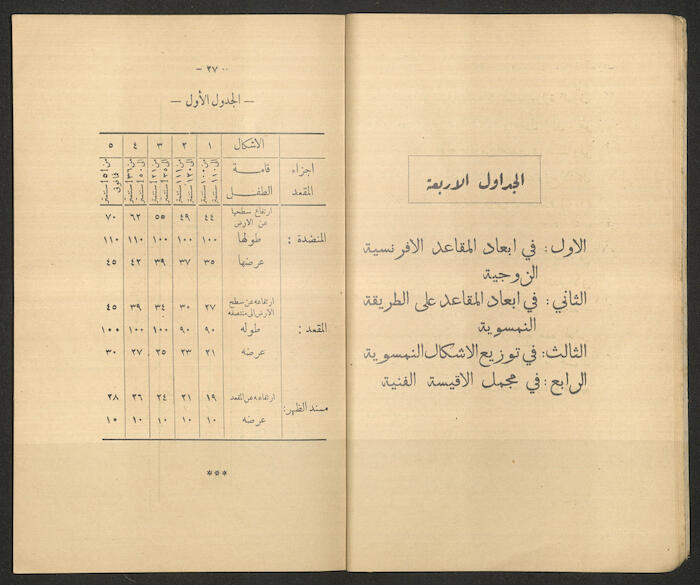 الجداول الاربعة
الاول: في ابعاد المقاعد الافرنسية
الزوجية
الثاني: في ابعاد المقاعد على الطريقة
النمسوية
الثالث: في توزيع الاشكال النمسوية
الرابع: في مجمل الاقيسة الفنية
- ٢٧ -
— الجدول الأول —
الاشكال ١ ٢ ٣ ٤ ٥
اجزاء قامة من ١٠٠ الى ١١٠ سنتمتر من ١١١ الى ١٢٠ سنتمتر من ١٢١ الى ١٣٥ سنتمتر من ١٣٦ الى ١٥٠ سنتمتر من ١٥١ سنتمتر فما فوق
المقعد الطفل
ارتفاع سطحها
عن الارض ٤٤ ٤٩ ٥٥ ٦٢ ٧٠
المنضدة: طولها ١٠٠ ١٠٠ ١٠٠ ١١٠ ١١٠
عرضها ٣٥ ٣٧ ٣٩ ٤٢ ٤٥
ارتفاعه عن سطح
الارض الى منتصفه ٢٧ ٣٠ ٣٤ ٣٩ ٤٥
المقعد: طوله ٩٠ ٩٠ ١٠٠ ١٠٠ ١٠٠
عرضه ٢١ ٢٣ ٢٥ ٢٧ ٣٠
ارتفاعه عن المقعد ١٩ ٢١ ٢٤ ٢٦ ٢٨
مسند الظهر: عرضه ١٠ ١٠ ١٠ ١٠ ١٠
***